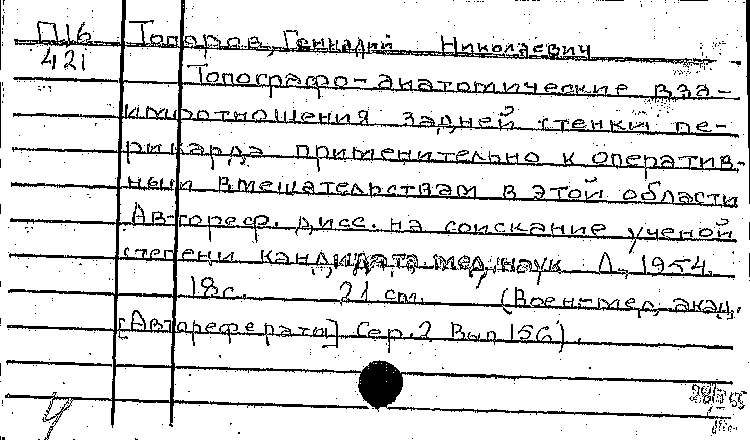 П16 Топоров, Геннадий Николаевич
421 Топографо-анатомические вза-
имоотношения задней стенки пе-
рикарда применительно к оператив-
ным вмешательствам в этой области
Автореф. дисс. на соискание ученой
степени кандидата мед. наук Л., 1954.
18с. 21 cm. (Воен-мед. акад.
[Авторефераты] Сер. 2 Вып 156).